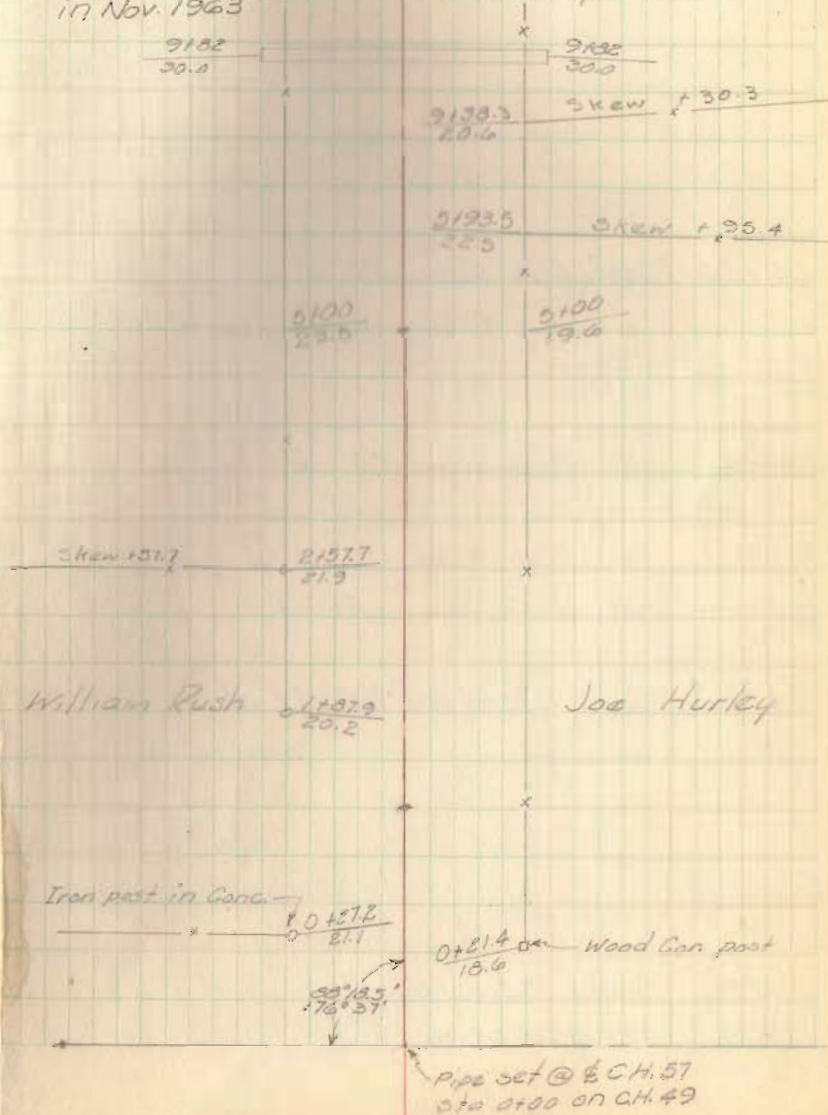 in Nov. 1963
9+82
30.0
9+82
30.0
9+38.3
20.6
Skew + 30.3
5+93.5
22.5
Skew + 95.4
5+00
5+00
19.6
Skew +57.7
2+57.7
21.9
William Rush
1+87.9
20.2
Joe Hurley
Iron post in Conc.
0+27.2
21.1
0+21.4
18.6
Wood Cor. post
88°18.5'
176°37'
Pipe set @ ℄ C.H. 57
Sta 0+00 on C.H. 49